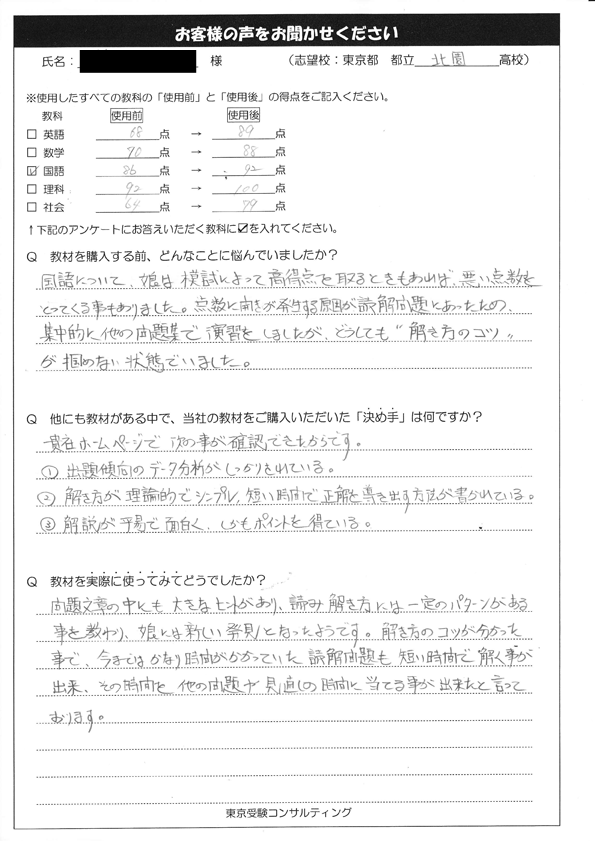 お客様の声をお聞かせください
氏名： 様 （志望校：東京都 都立 北園 高校）
※使用したすべての教科の「使用前」と「使用後」の得点をご記入ください。
教科 使用前 使用後
□ 英語 68 点 → 89 点
□ 数学 70 点 → 88 点
☑ 国語 86 点 → 92 点
□ 理科 92 点 → 100 点
□ 社会 64 点 → 79 点
↑下記のアンケートにお答えいただく教科に☑を入れてください。
Q 教材を購入する前、どんなことに悩んでいましたか？
国語について、娘は模試によって高得点を取るときもあれば、悪い点数を
とってくる事もありました。点数に開きが発生する原因が読解問題にあったため、
集中的に他の問題集で演習をしましたが、どうしても"解き方のコツ"
が掴めない状態でいました。
Q 他にも教材がある中で、当社の教材をご購入いただいた「決め手」は何ですか？
貴社ホームページで次の事が確認できたからです。
① 出題傾向のデータ分析がしっかりされている。
② 解き方が理論的でシンプル、短い時間で正解を導き出す方法が書かれている。
③ 解説が平易で面白く、しかもポイントを得ている。
Q 教材を実際に使ってみてどうでしたか？
問題文章の中にも大きなヒントがあり、読み解き方には一定のパターンがある
事を教わり、娘には新しい発見となったようです。解き方のコツが分かった
事で、今まではかなり時間がかかっていた読解問題も短い時間で解く事が
出来、その時間を他の問題や見直しの時間に当てる事が出来たと言って
おります。
東京受験コンサルティング